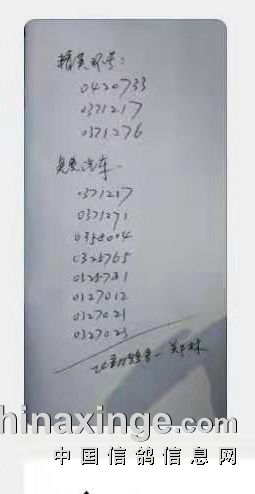 精英环号:
0420733
0371217
0371276
汽车
0371217
0371271
0358004
0325765
0325781
0327012
0327021
0327023
郑林
hinaxinge.com
中国信鸽信息网